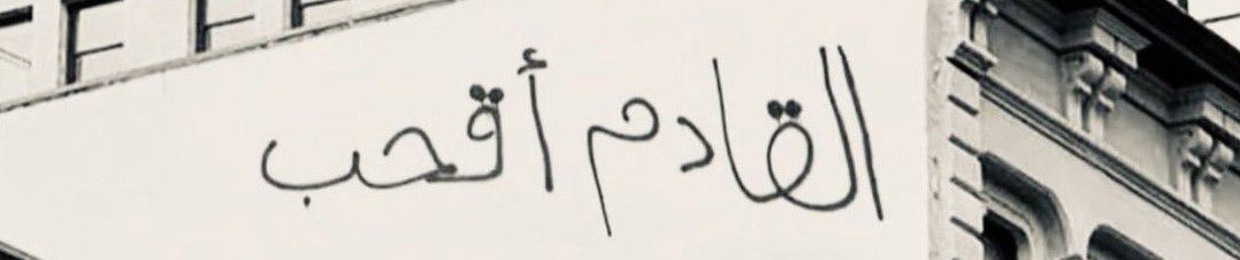 القادم أقحب